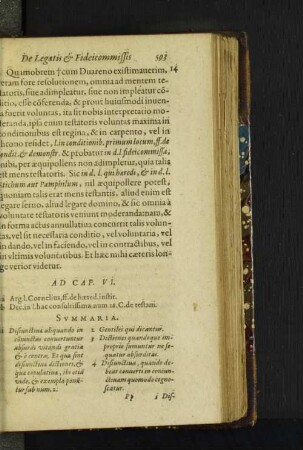 De Legatis & Fideicommissis 593
Quamobrem † cum Duareno existimauerim, 14
eram fore resolutionem, omnia ad mentem te-
statoris, siue adimpleatur, siue non impleatur cō-
ditio, esse cōferenda, & prout huiusmodi inuen-
ta fuerit voluntas, ita sit nobis interpretatio mo-
deranda, ipsa enim testatoris voluntas maxima in
conditionibus est regina, & in carpento, vel in
throno residet, l. in conditionib. primum locum, ff. de
condit. & demonstr. & probatur in d. l. fideicommissa,
nibi, per æquipollens non adimpletur, quia talis
est mens testatoris. Sic in d. l. qui hæredi, & in d. l.
stichum aut Pamphilum, nil æquipollere potest,
quoniam talis erat mens testantis, aliud enim est
legare seruo, aliud legare domino, & sic omnia à
voluntate testatoris veniunt moderanda: nam, &
in forma actus annullatiua concurrit talis volun-
tas, vel sit necessaria conditio, vel voluntaria, vel
in dando, vel in faciendo, vel in contractibus, vel
in vltimis voluntatibus. Et hæc mihi cæteris lon-
ge verior videtur.
AD CAP. VI.
Arg l. Cornelius, ff. de hæred. instit.
Dec. in l. hac consultissima num. 12. C. de testam.
SVMMARIA.
1 Disiunctiua aliquando in
coniunctas conuertuntur
absurdi vitandi gratia
& è contra. Et quæ sint
disiunctiuæ dictiones, &
quæ copulatiuæ, ibi cum
vide, & exempla ponun-
tur sub num. 2.
2 Gentiles qui dicantur.
3 Dictiones quandoque im-
propriè sumuntur ne se-
quatur absurditas.
4 Disiunctiua, quando de-
beat conuerti in coniun-
ctinam quemodo cogno-
scatur.
Pp 1 Dis-